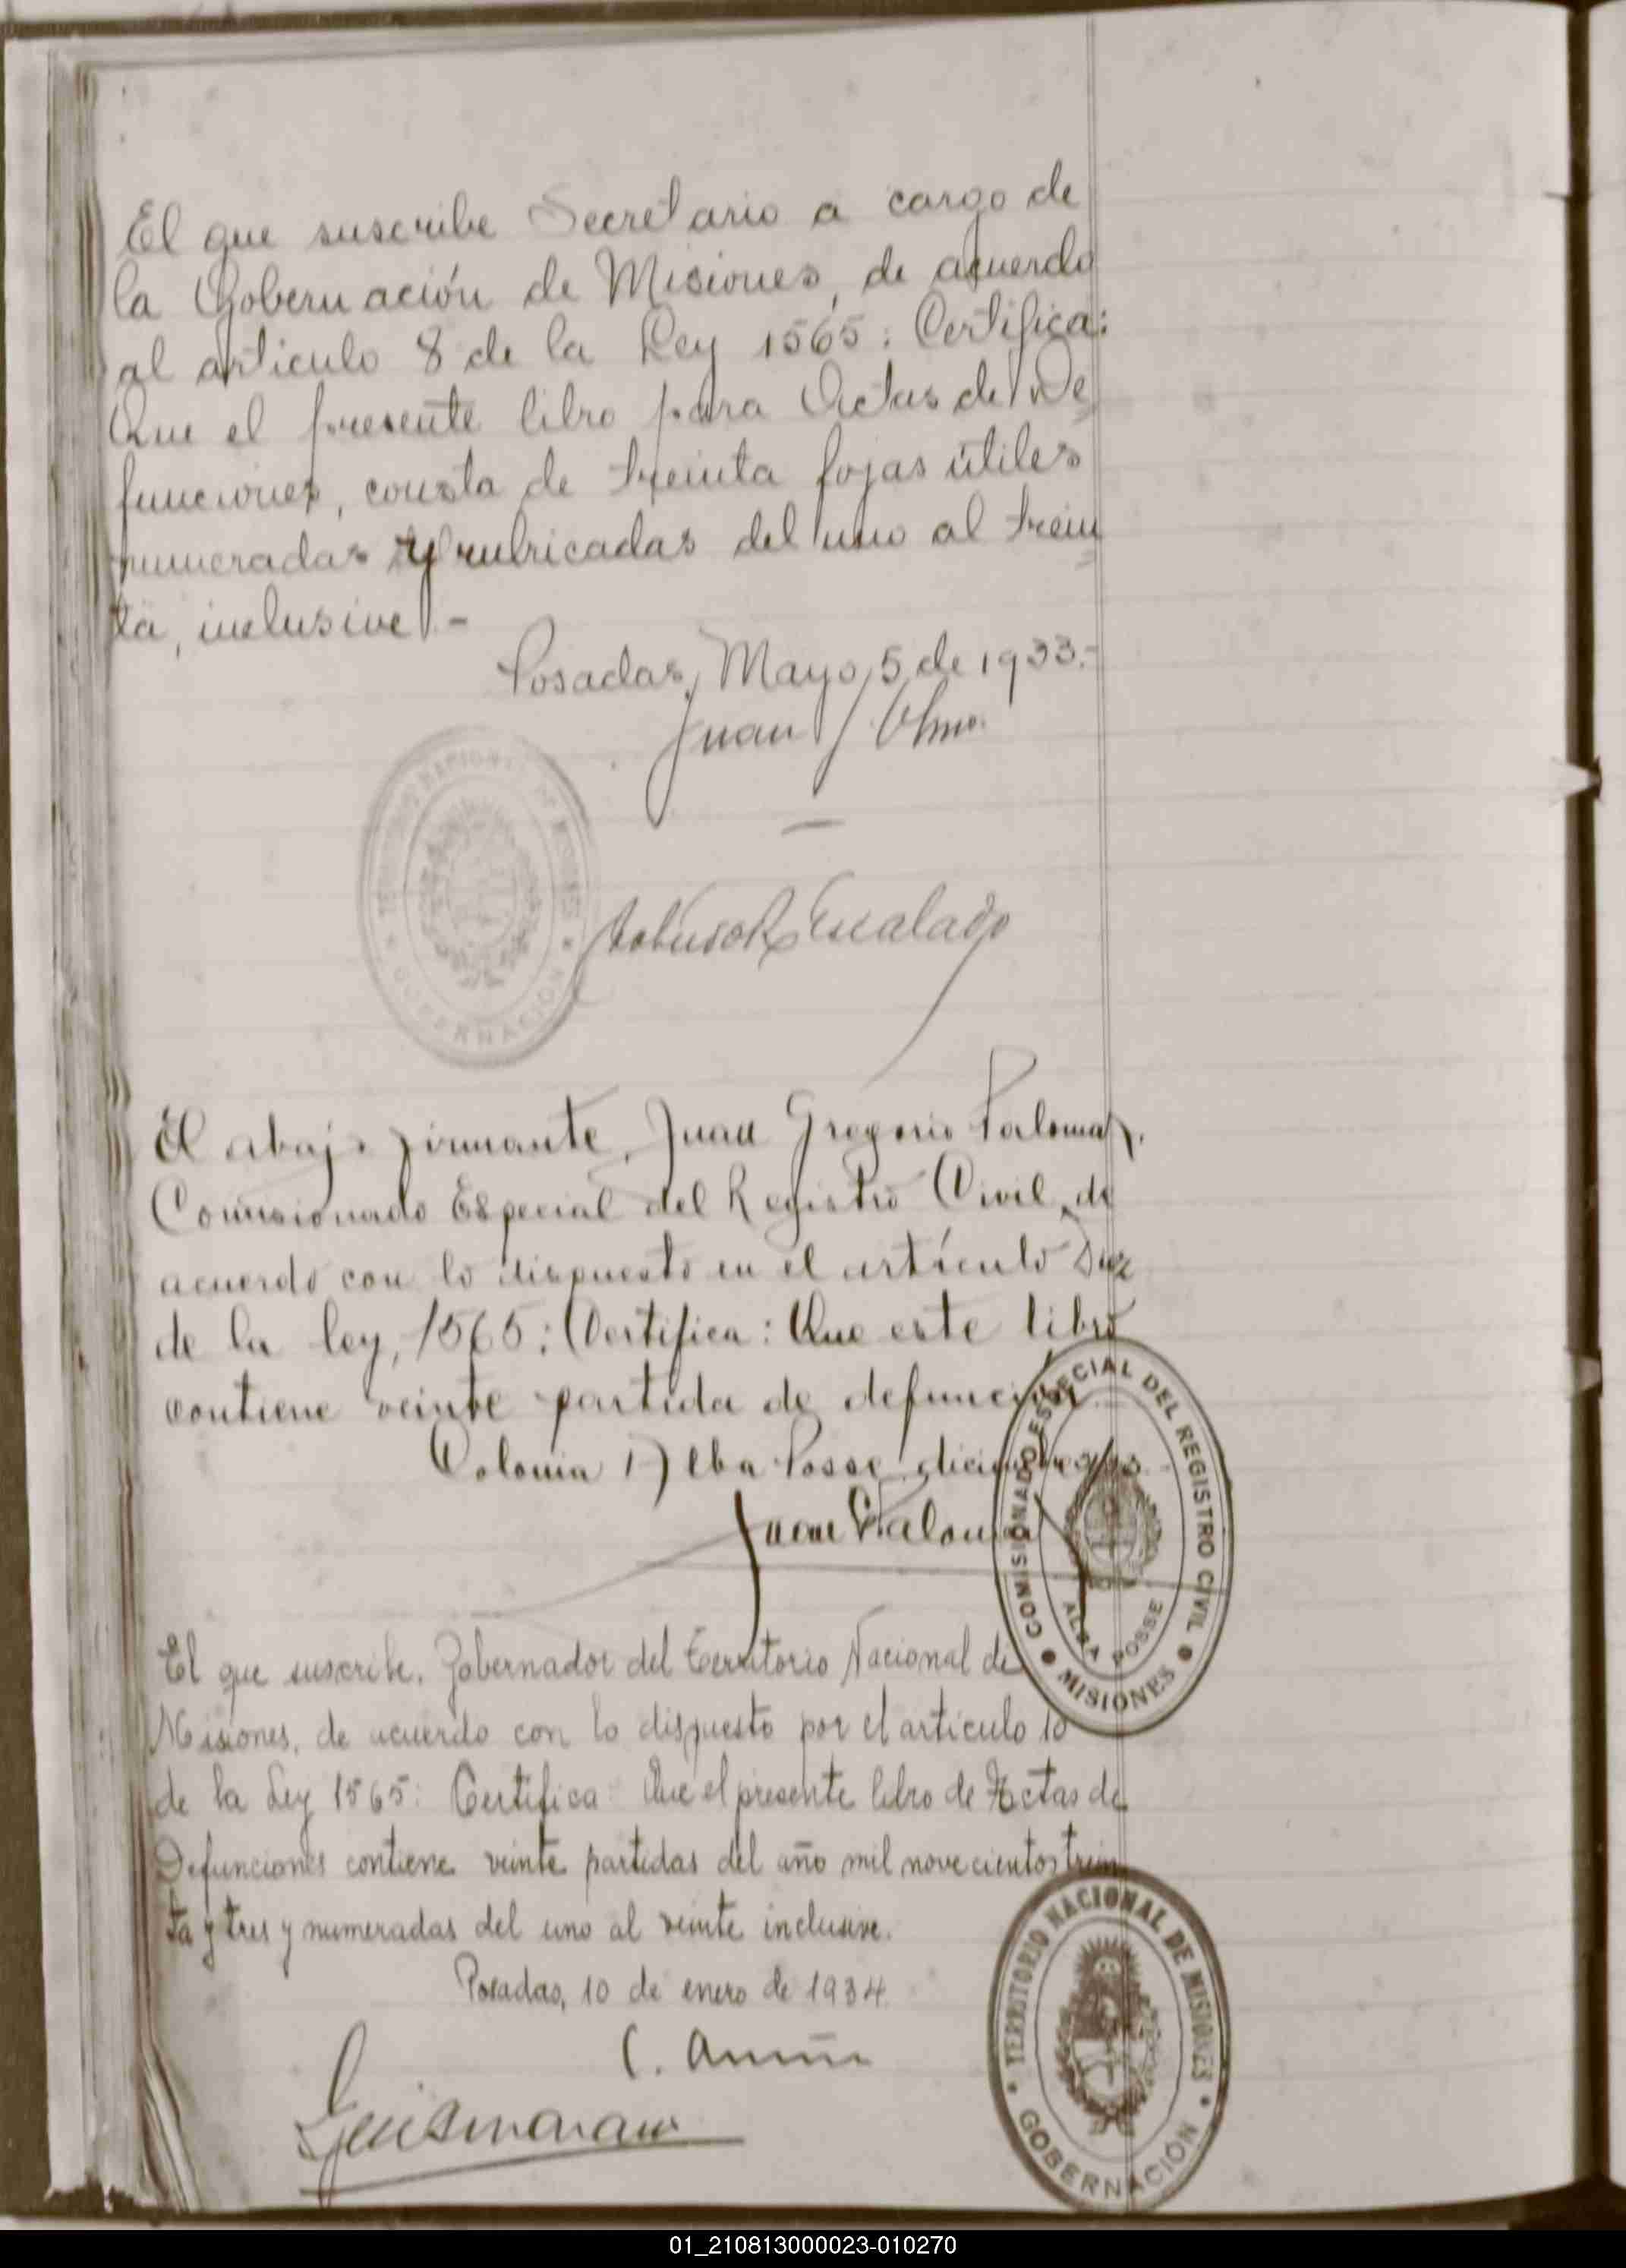 El que suscribe Secretario a cargo de
la Gobernación de Misiones, de acuerdo
al articulo 8 de la Ley 1565: Certifica:
Que el presente libro para Actas de De
funciones, consta de treinta fojas útiles
numeradas y rubricadas del uno al trein
ta, inclusive.-
Posadas, Mayo 5 de 1933.-
Juan
TERRITORIO NACIONAL DE MISIONES
GOBERNACIÓN
Escalada
El abajo firmante, Juan Gregorio Palomar,
Comisionado Especial del Registro Civil, de
acuerdo con lo dispuesto en el artículo Diez
de la ley, 1565: Certifica: Que este libro
contiene veinte partida de defunción
Colonia Alba Posse, diciembre
Juan Palomar
COMISIONADO ESPECIAL DEL REGISTRO CIVIL
ALBA POSSE
MISIONES
El que suscribe, Gobernador del Territorio Nacional de
Misiones, de acuerdo con lo dispuesto por el articulo 10
de la Ley 1565: Certifica: Que el presente libro de Actas de
Defunciones contiene veinte partidas del año mil novecientos trein
ta y tres y numeradas del uno al veinte inclusive.
Posadas, 10 de enero de 1934
C.
TERRITORIO NACIONAL DE MISIONES
GOBERNACIÓN
01_210813000023-010270